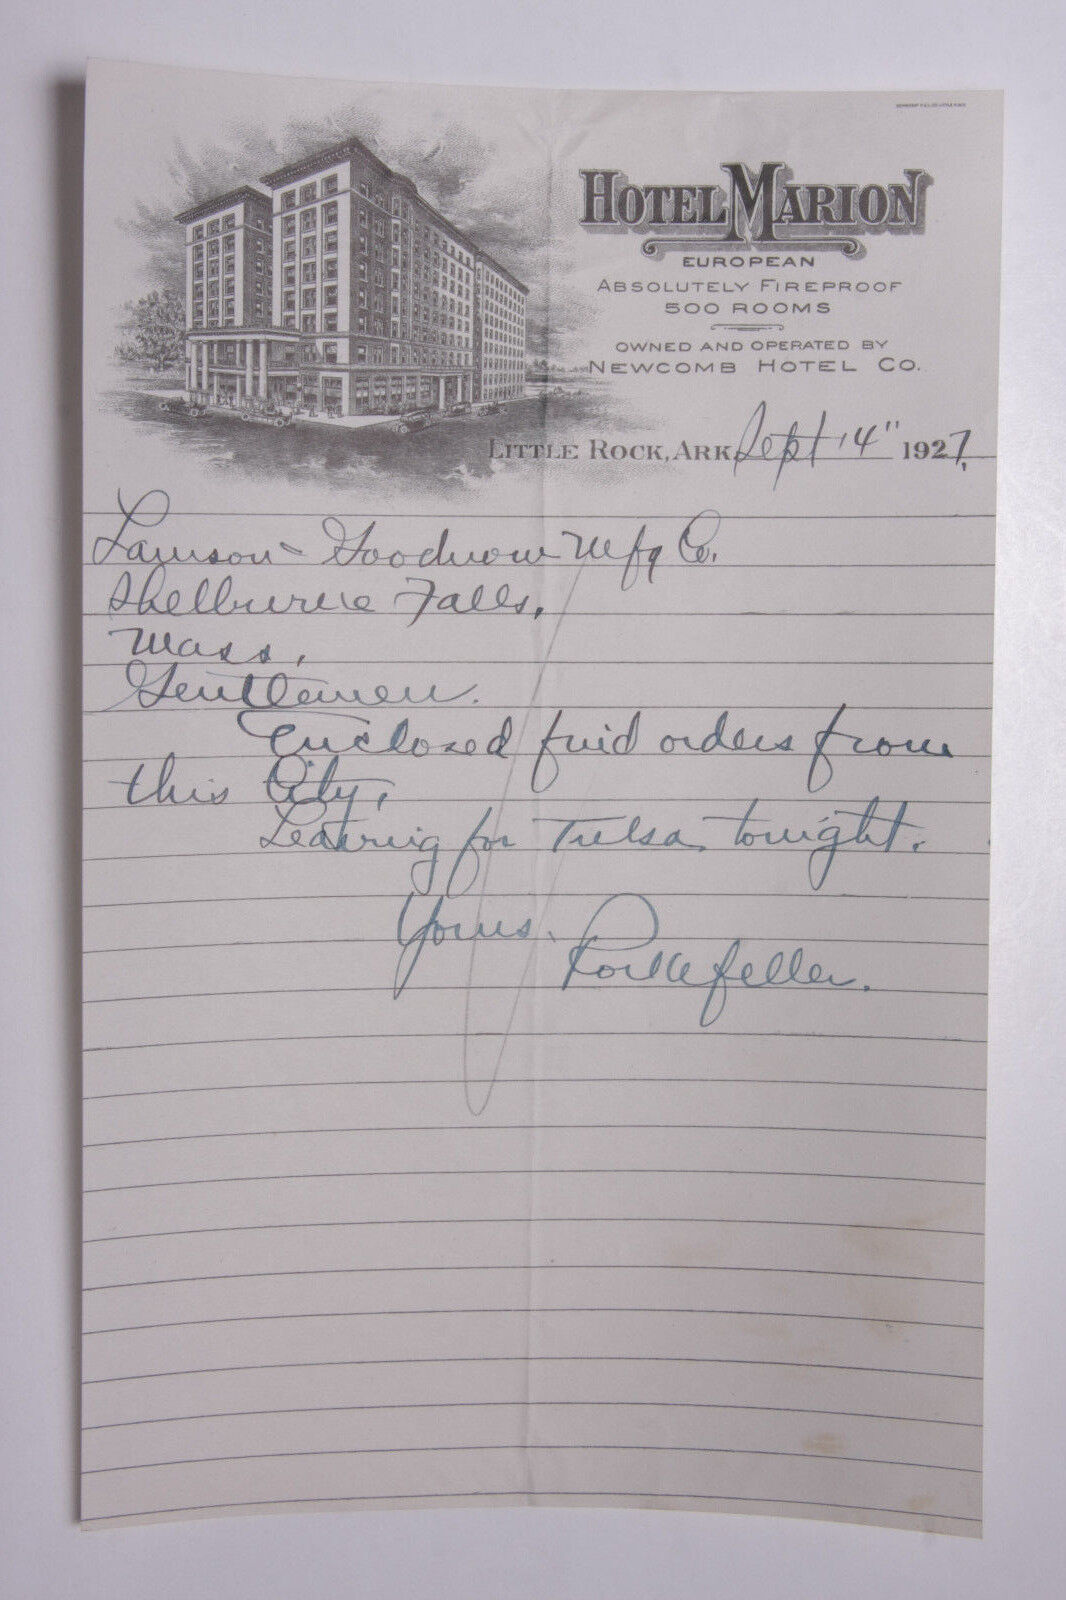 HOTEL MARION
EUROPEAN
ABSOLUTELY FIREPROOF
500 ROOMS
OWNED AND OPERATED BY
NEWCOMB HOTEL CO.
LITTLE ROCK, ARK. Sept 14" 1927.
Lamson - Goodnow Mfg Co.
Shelburne Falls,
Mass,
Gentlemen.
Enclosed find orders from
this City,
Leaving for Tulsa, tonight.
Yours.
Rockefeller.